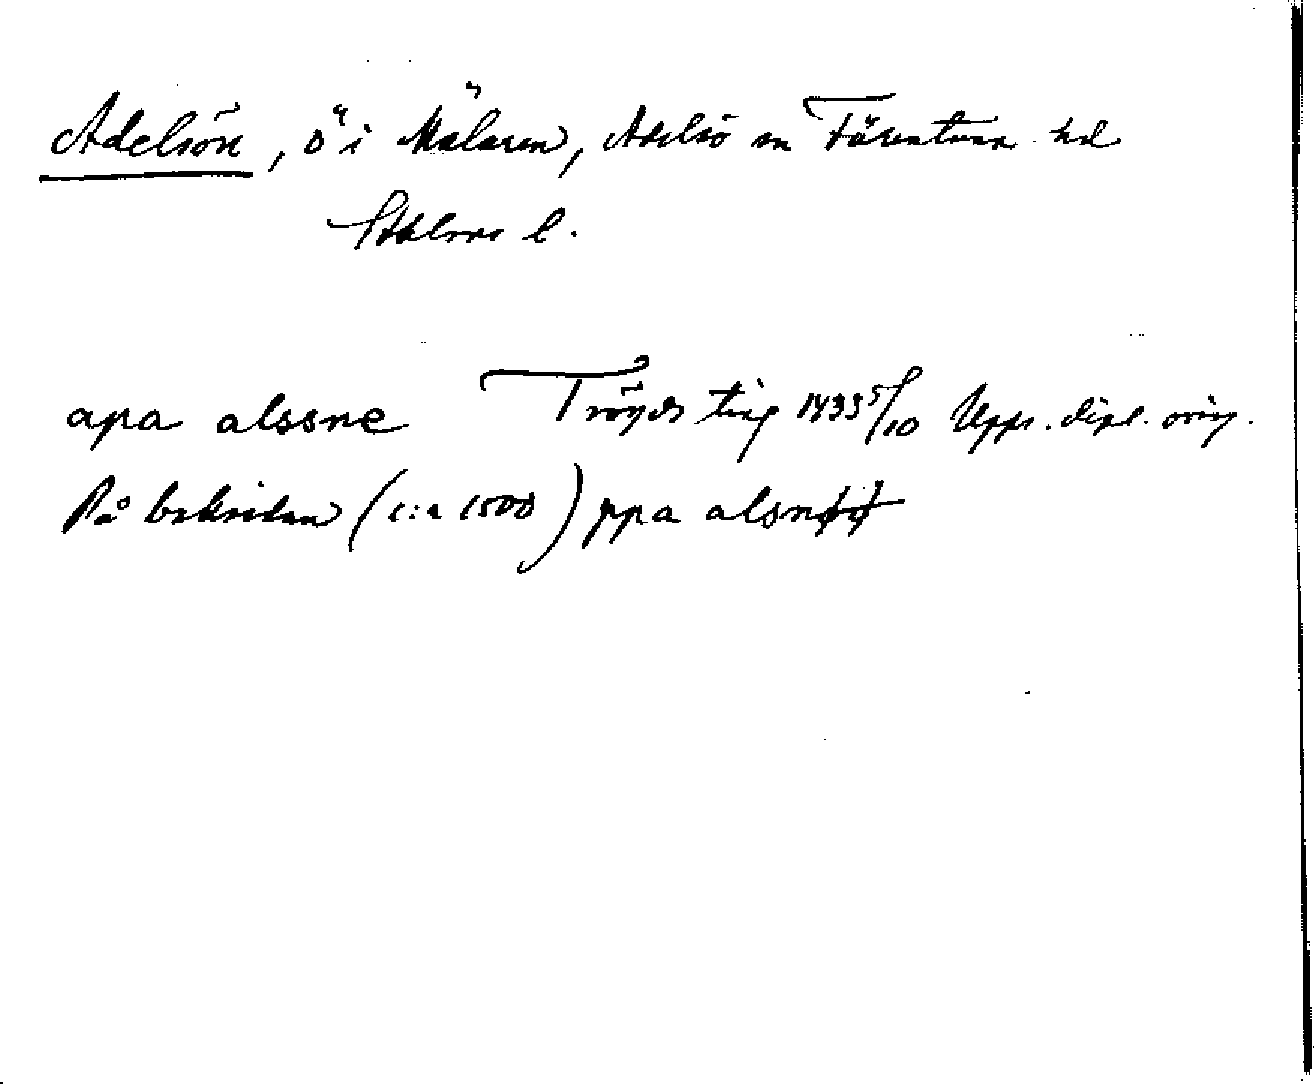 Adelsön, ö i Mälaren, Adelsö sn Färentuna hd
Sthlms l.
apa alssne Trögds ting 1433 5/10 Upps. dipl. orig.
På baksidan (c:a 1500) ppa alsnøø